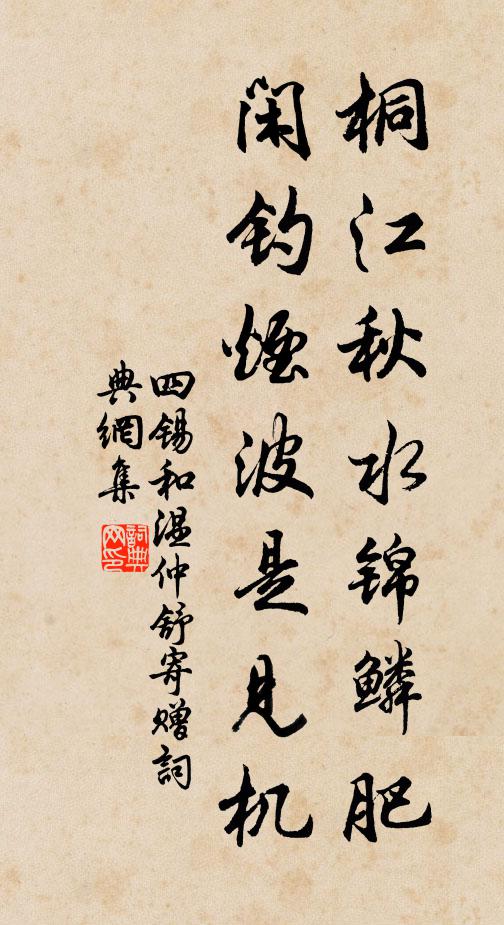 桐江秋水锦鳞肥
闲钓煙波是见机
四锡和温仲舒寄赠詞
典網集
詞典
网印